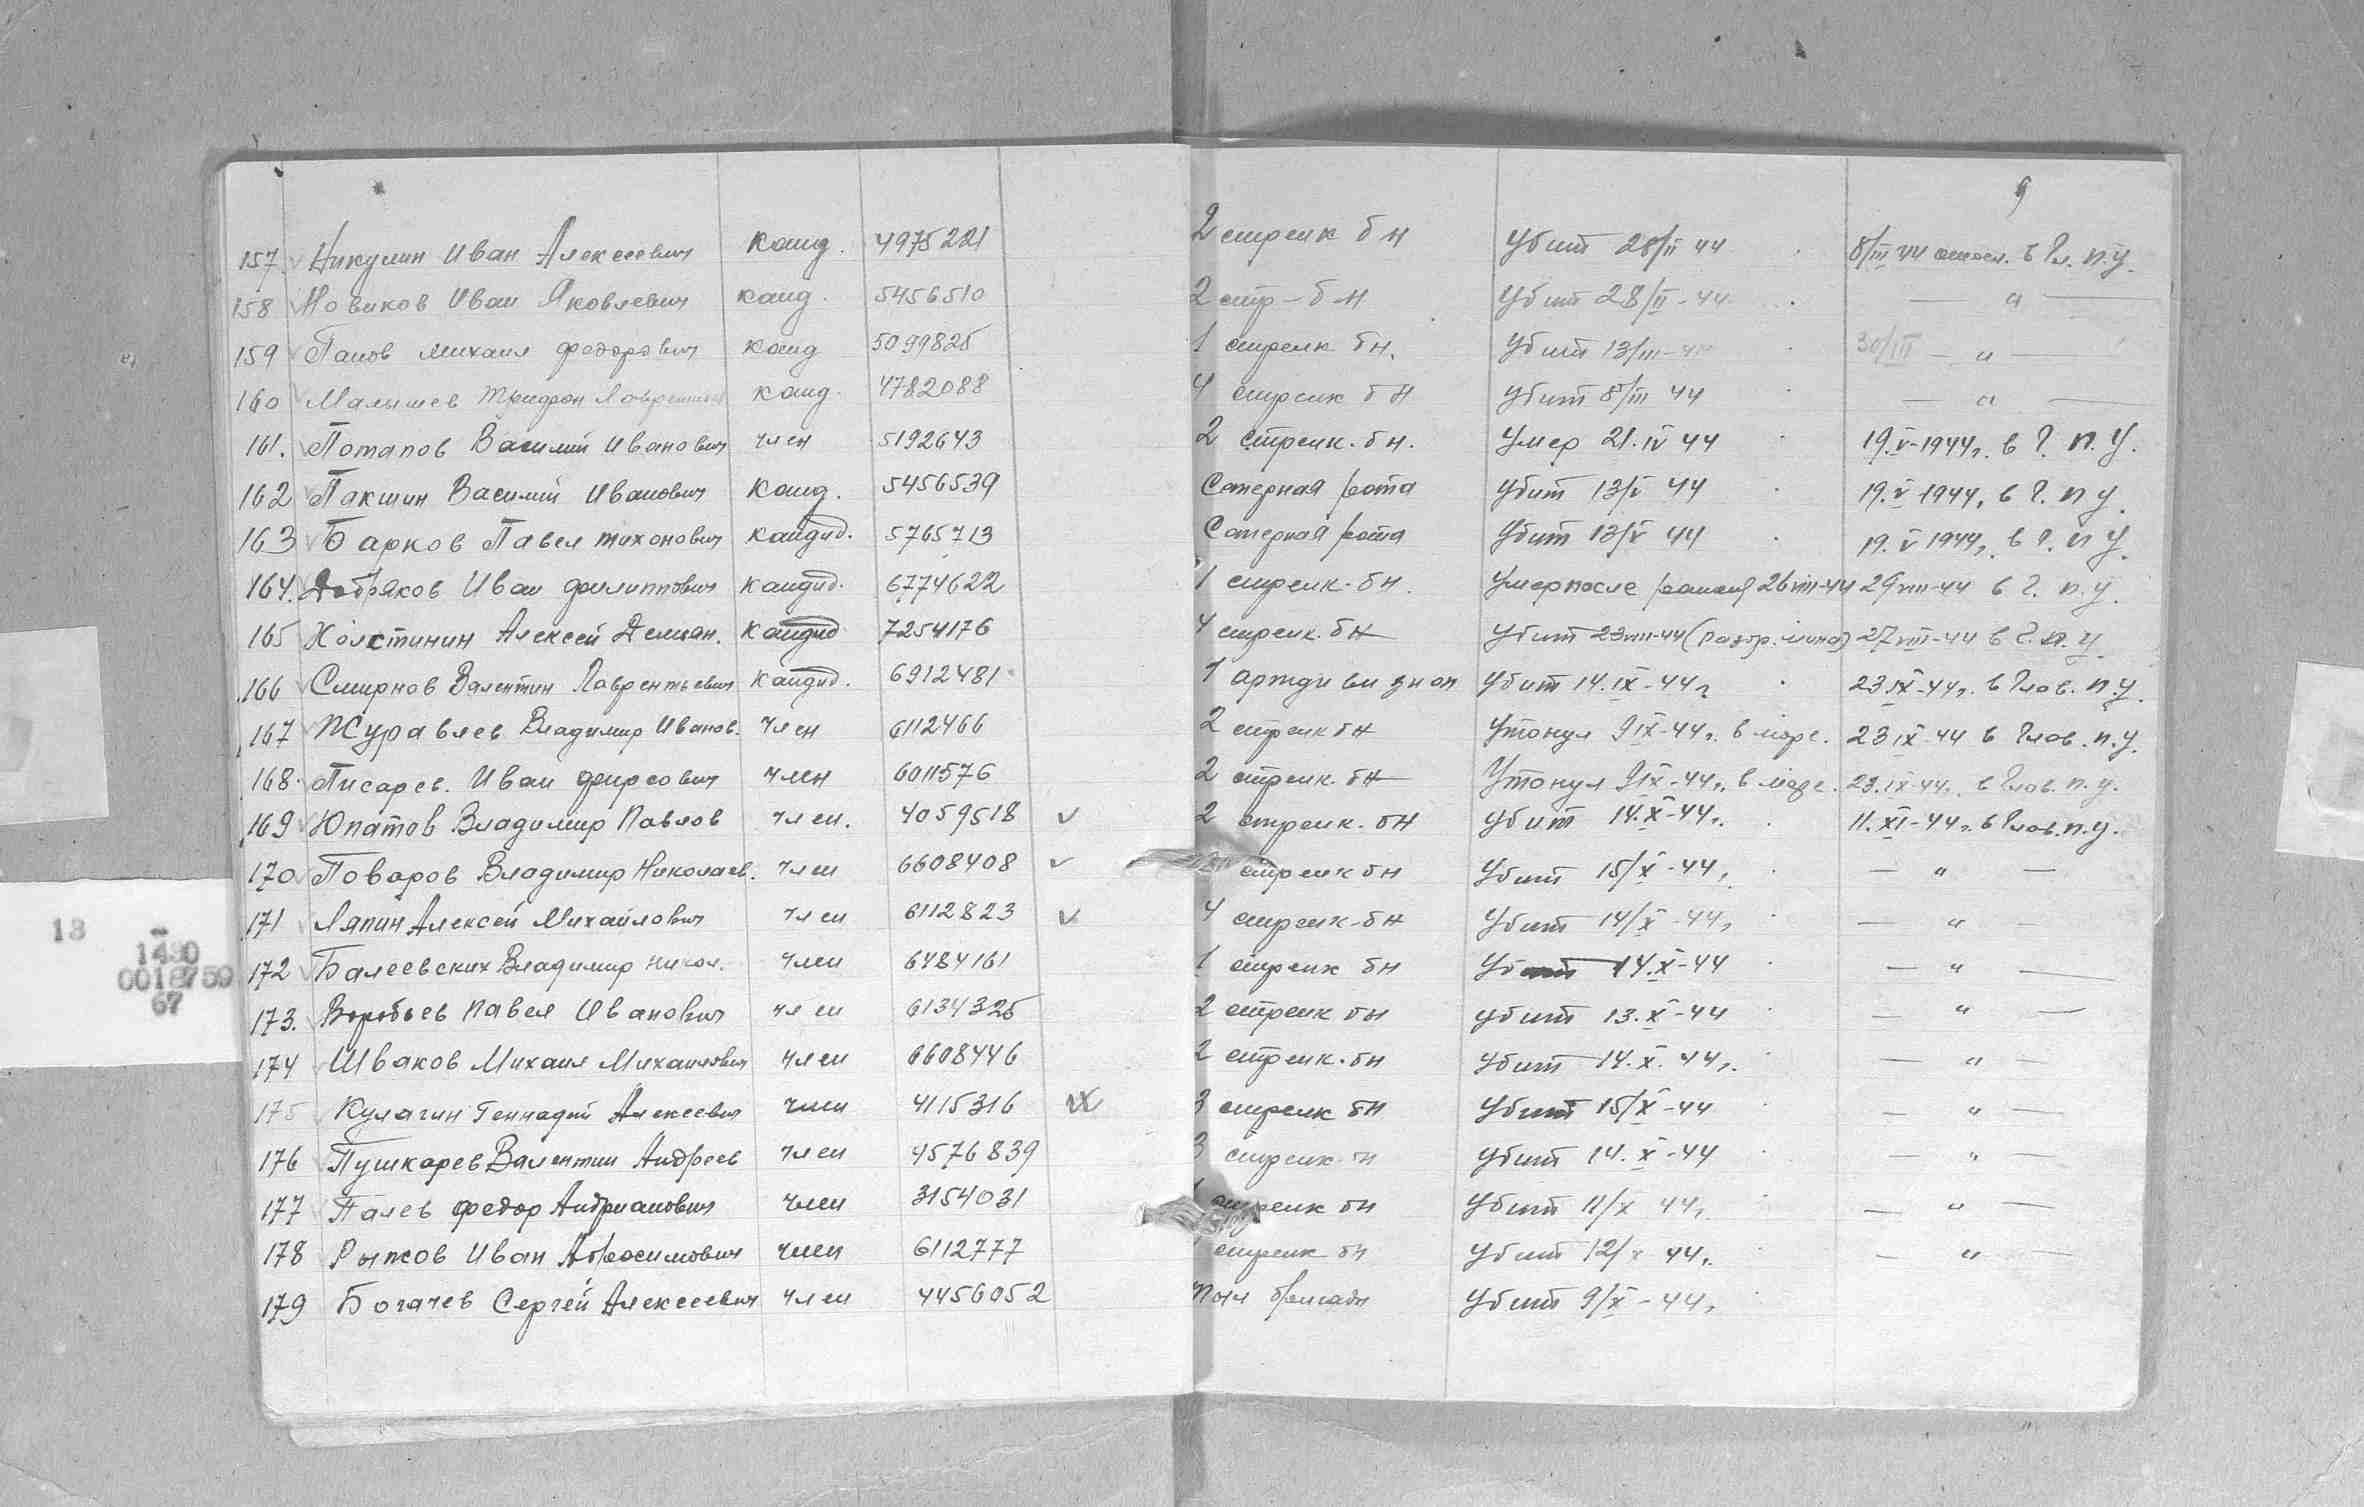 9
157 Никулин Иван Алексеевич канд. 4975221 2 стрелк бн Убит 28/II 44 8/III 44 отосл. в Гл. п.у.
158 Новиков Иван Яковлевич канд. 5456510 2 стр-бн Убит 28/II-44 — " —
159 Панов Михаил Федорович канд 5099825 1 стрелк бн. Убит 13/III-44 30/III — " —
160 Малышев Трифон канд. 4782088 4 стрелк бн Убит 8/III 44 — " —
161. Потапов Василий Иванович член 5192643 2 стрелк. бн. Умер 21.IV 44 19.V-1944г. в Г. П.У.
162 Пакшин Василий Иванович Канд. 5456539 Саперная рота Убит 13/V 44 19.V 1944г. в Г. п у.
163 Барков Павел Тихонович кандид. 5765713 Саперная рота Убит 13/V 44 19.V 1944г. в Г. п у.
164. Добряков Иван Филиппович кандид. 6774622 1 стрелк-бн. Умер после 26 VIII-44 29 VIII-44 в Г. п.у.
165 Холстинин Алексей Демьян. кандид 7254176 4 стрелк. бн Убит 23 VIII-44 27 VIII-44 в Г. п. у.
166 Смирнов Валентин Лаврентьевич кандид. 6912481 1 артдивизион Убит 14.IX-44г 23.IX-44г. в Глав. п.у.
167 Журавлев Владимир Иванов. Член 6112466 2 стрелк бн Утонул 9 IX-44г. в море. 23 IX-44 в Глав. п.у.
168. Писарев. Иван Фирсович член 6011576 2 стрелк. бн Утонул 9 IX-44г. в море. 23.IX-44г. в Глав. п.у.
169 Юпатов Владимир Павлов член. 4059518 ✓ 2 стрелк. бн Убит 14.X-44г. 11.XI-44г. в Глав. п.у.
170 Поворов Владимир Николаев. член 6608408 ✓ стрелк бн Убит 15/X-44г. — " —
171 Ляпин Алексей Михайлович член 6112823 ✓ 4 стрелк-бн Убит 14/X-44г. — " —
172 Балеевских Владимир Никол. член 6484161 1 стрелк бн Убит 14.X-44 — " —
173. Воробьев Павел Иванович член 6134325 2 стрелк бн Убит 13.X-44 — " —
174 Шваков Михаил Михайлович член 6608446 2 стрелк. бн Убит 14.X.44г. — " —
175 Кулагин Геннадий Алексеевич член 4115316 3 стрелк бн Убит 15/X-44 — " —
176 Пушкарев Валентин Андреев член 4576839 3 стрелк бн Убит 14.X-44 — " —
177 Палев Федор Андрианович член 3154031 стрелк бн Убит 11/X 44г. — " —
178 Рыжов Иван член 6112777 стрелк бн Убит 12/X 44г. — " —
179 Богачев Сергей Алексеевич член 4456052 бригады Убит 9/X-44г.
13
1480
0018759
67